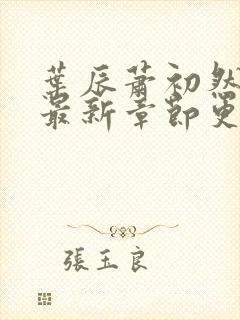 葉辰蕭初然
最新章節更
張玉良